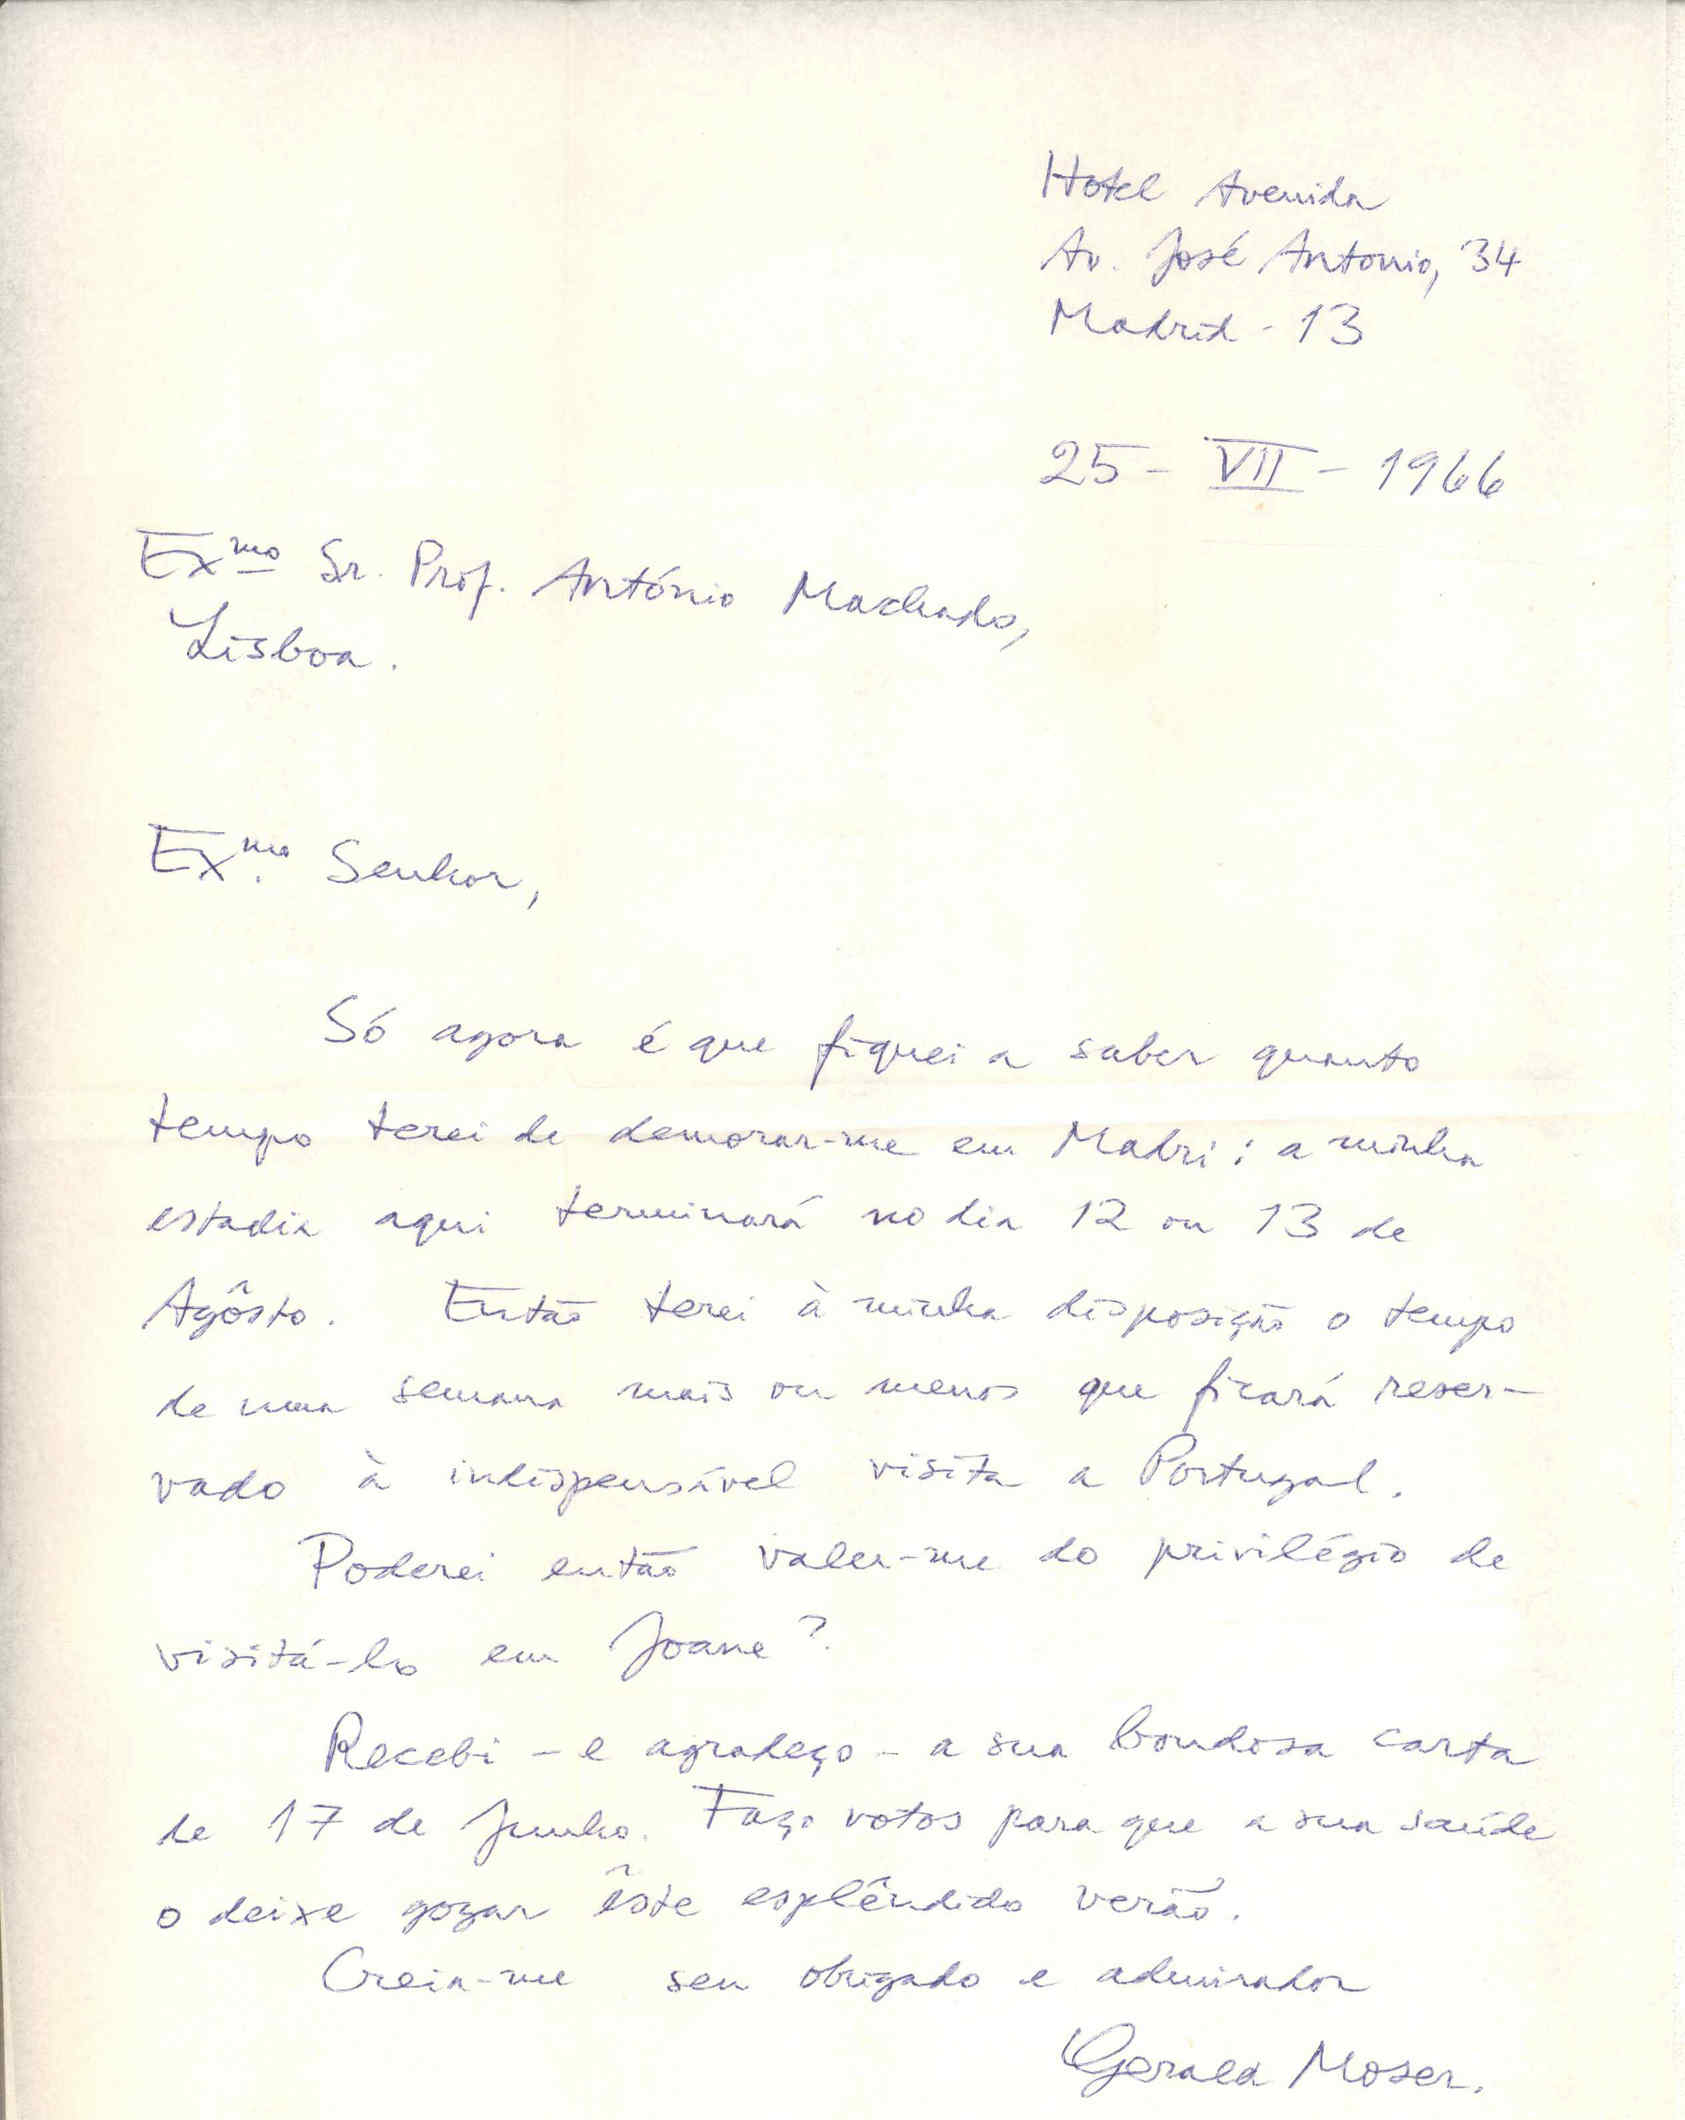 Hotel Avenida
Av. José Antonio, 34
Madrid - 13
25 - VII - 1966
Exmo Sr. Prof. António Machado,
Lisboa.
Exmo. Senhor,
Só agora é que fiquei a saber quanto
tempo terei de demorar-me em Madri: a minha
estadia aqui terminará no dia 12 ou 13 de
Agôsto. Então terei à minha disposição o tempo
de uma semana mais ou menos que ficará reser-
vado à indispensável visita a Portugal.
Poderei então valer-me do privilégio de
visitá-lo em Joane?
Recebi - e agradeço - a sua bondosa carta
de 17 de Junho. Faço votos para que a sua saúde
o deixe gozar êste esplêndido verão.
Creia-me seu obrigado e admirador
Gerald Moser.